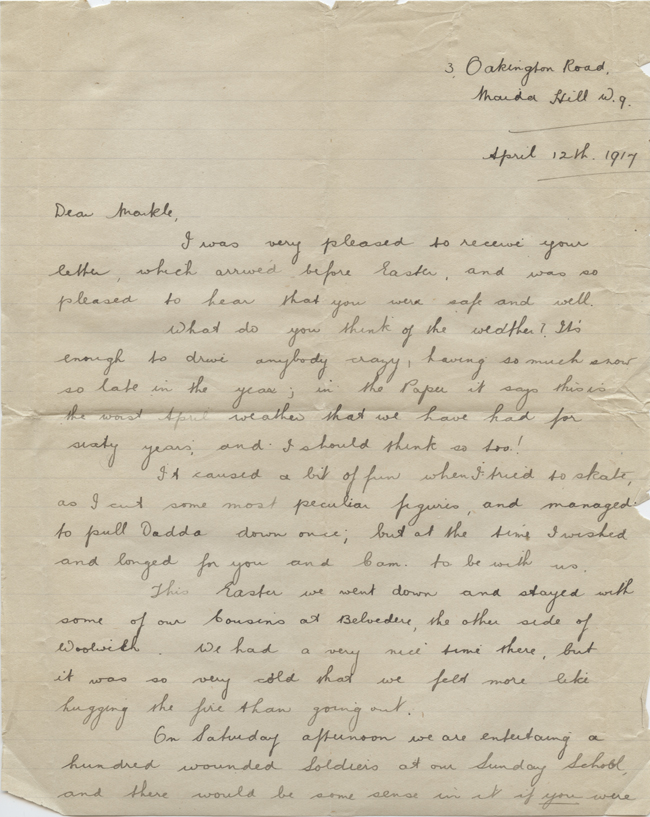 3, Oakington Road,
Maida Hill W.9.
April 12th. 1917
Dear Markle,
I was very pleased to receive your
letter, which arrived before Easter, and was so
pleased to hear that you were safe and well.
What do you think of the weather? It's
enough to drive anybody crazy, having so much snow
so late in the year; in the Paper it says this is
the worst April weather that we have had for
sixty years, and I should think so too!
It caused a bit of fun when I tried to skate,
as I cut some most peculiar figures, and managed
to pull Dadda down once; but at the time I wished
and longed for you and Cam. to be with us.
This Easter we went down and stayed with
some of our Cousins at Belvedere, the other side of
Woolwich. We had a very nice time there, but
it was so very cold that we felt more like
hugging the fire than going out.
On Saturday afternoon we are entertaing a
hundred wounded Soldiers at our Sunday School,
and there would be some sense in it if you were